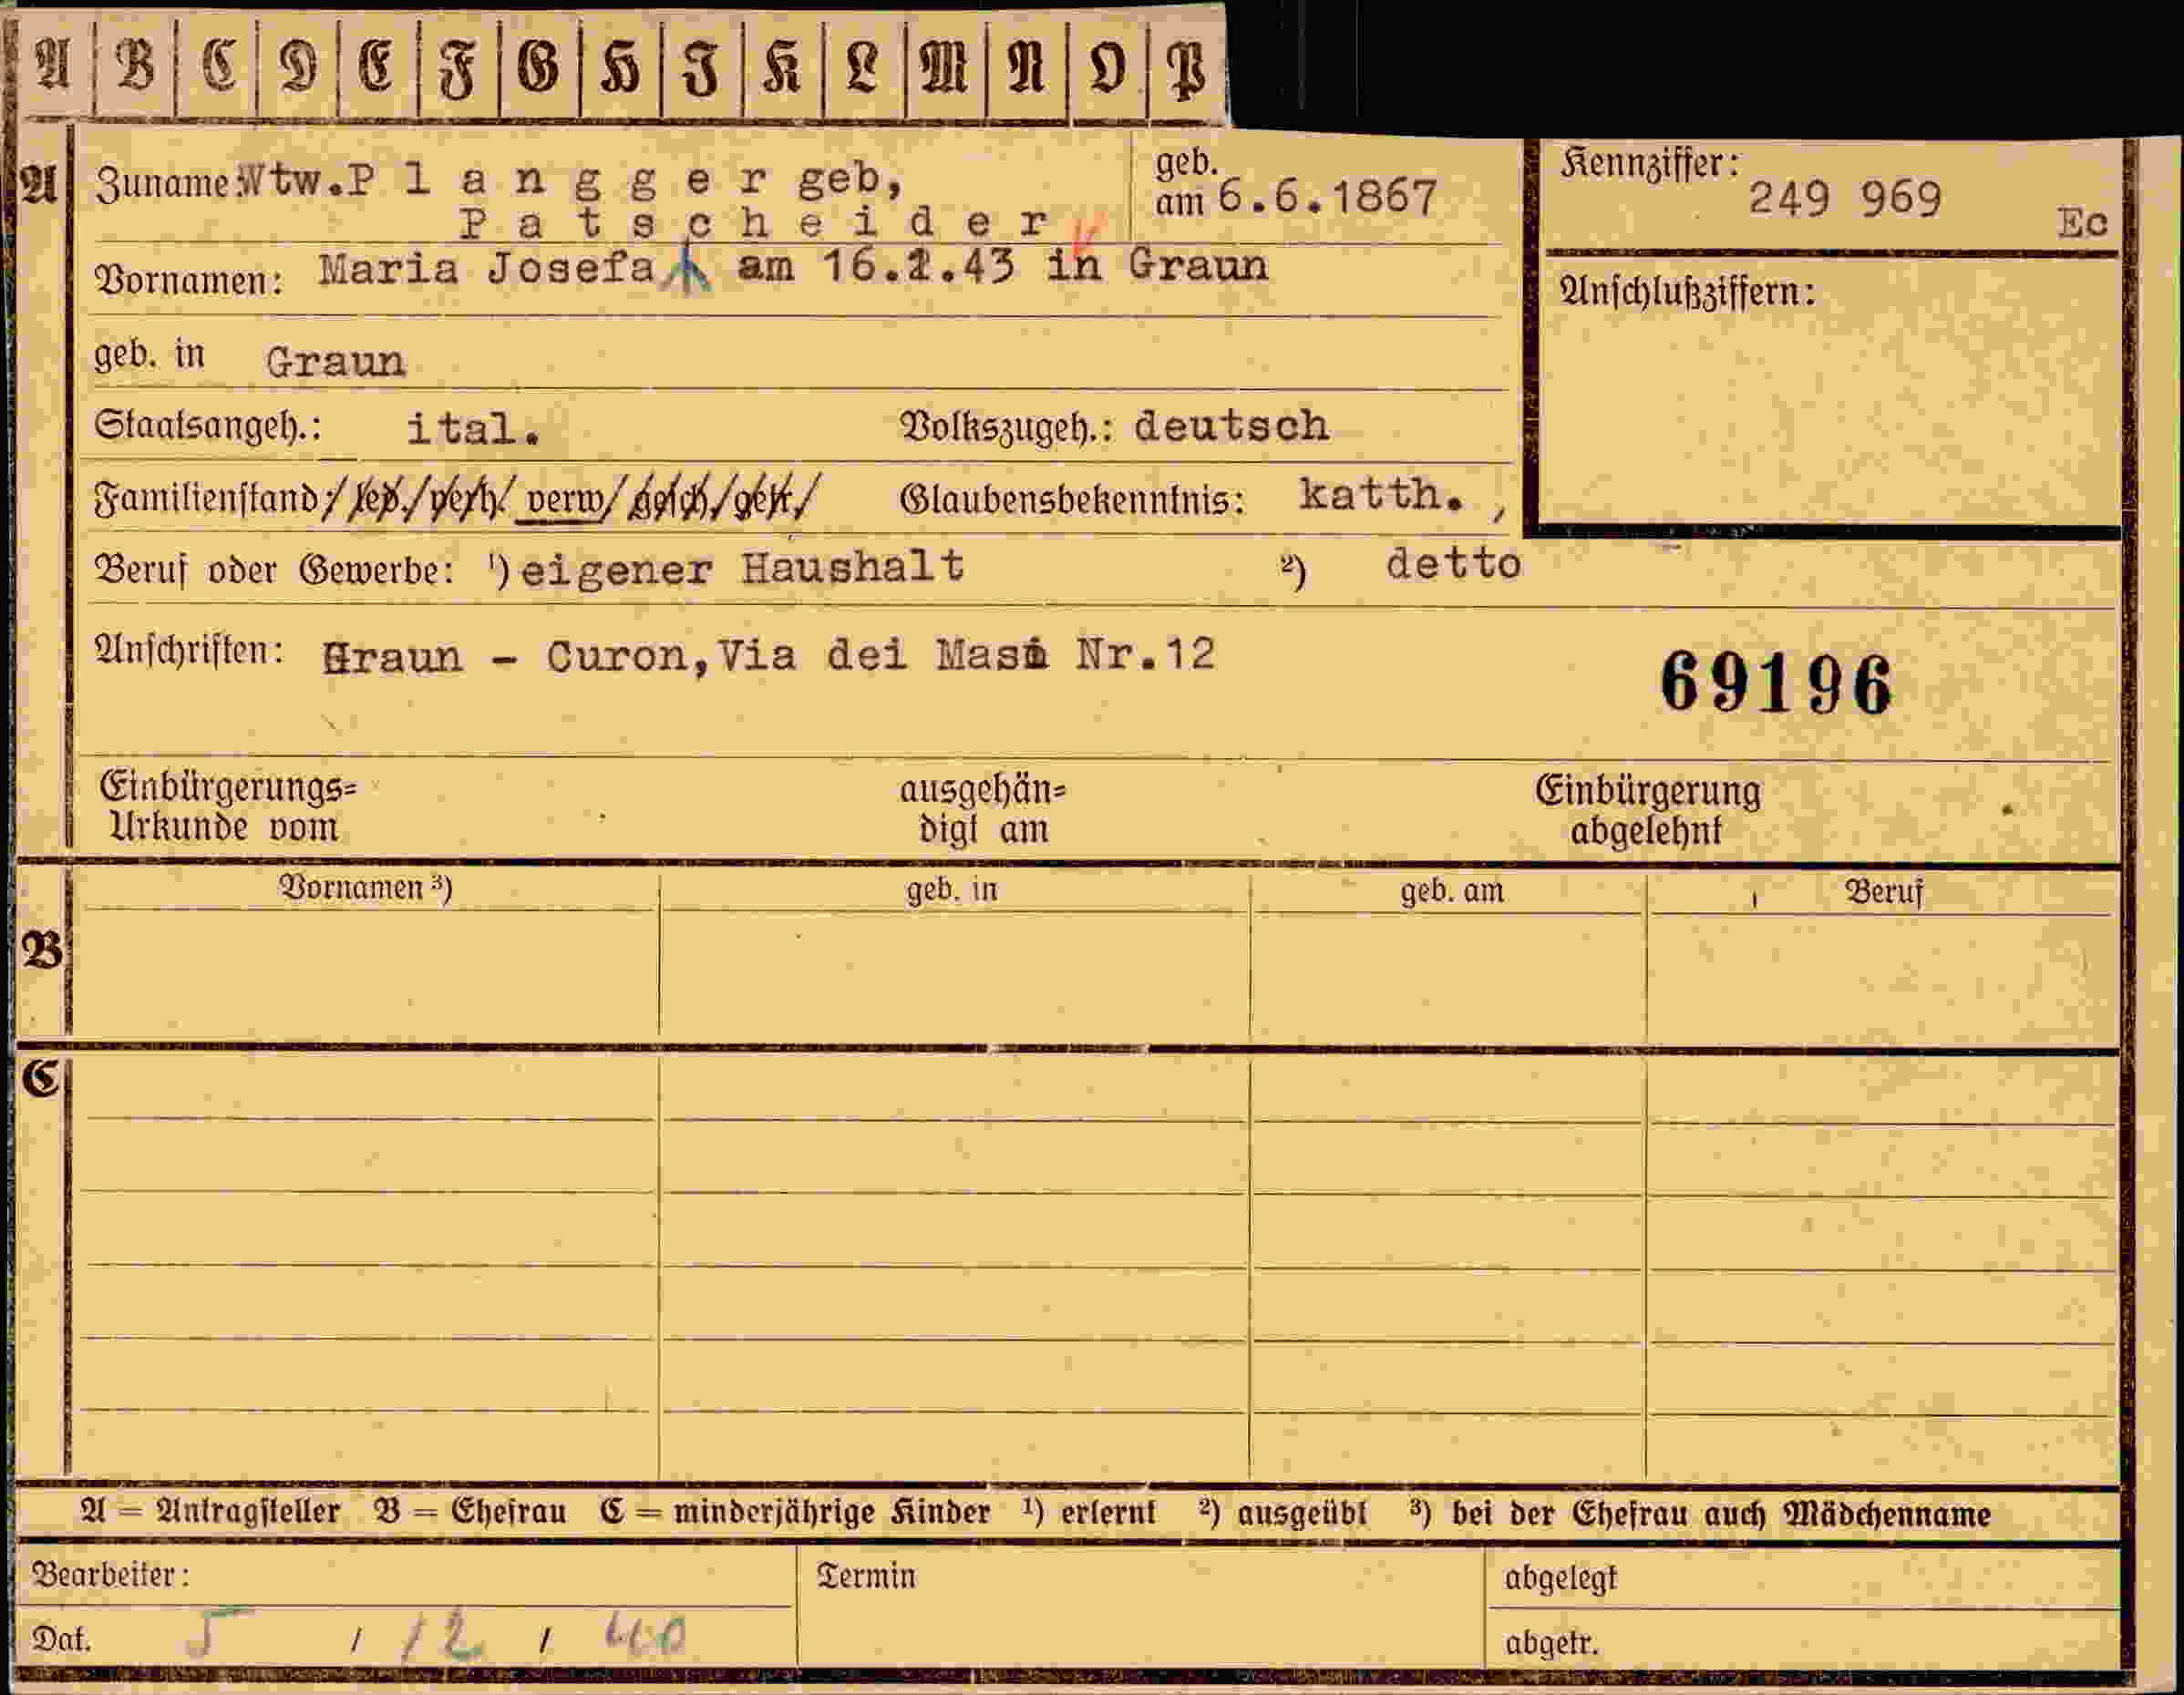 A B C D E F G H I K L M N O P
A Zuname: Wtw. P l a n g g e r geb,
P a t s c h e i d e r
geb. am 6.6.1867
Kennziffer: 249 969 Ec
Vornamen: Maria Josefa am 16.2.43 in Graun
Anschlußziffern:
geb. in Graun
Staatsangeh.: ital. Volkszugeh.: deutsch
Familienstand:/led./verh./verw/gesch/getr/ Glaubensbekenntnis: katth.,
Beruf oder Gewerbe: ¹) eigener Haushalt ²) detto
Anschriften: Graun - Curon, Via dei Masi Nr.12
69196
Einbürgerungs= ausgehän= Einbürgerung
Urkunde vom digt am abgelehnt
Vornamen ³) geb. in geb. am Beruf
B
C
A = Antragsteller B = Ehefrau C = minderjährige Kinder ¹) erlernt ²) ausgeübt ³) bei der Ehefrau auch Mädchenname
Bearbeiter: Termin abgelegt
Dat. 5 / 12 / 40 abgetr.